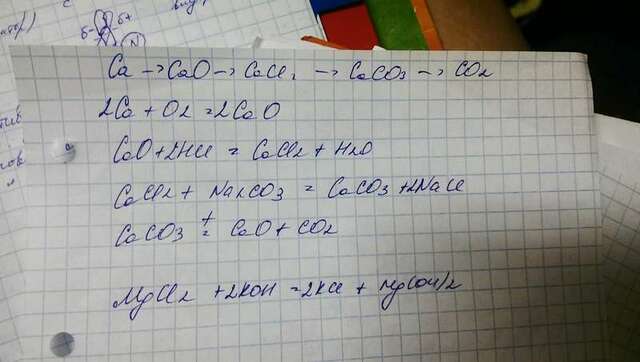 Ca → CaO → CaCl2 → CaCO3 → CO2
2Ca + O2 = 2CaO
CaO + 2HCl = CaCl2 + H2O
CaCl2 + Na2CO3 = CaCO3 + 2NaCl
t
CaCO3 = CaO + CO2
MgCl2 + 2KOH = 2KCl + Mg(OH)2